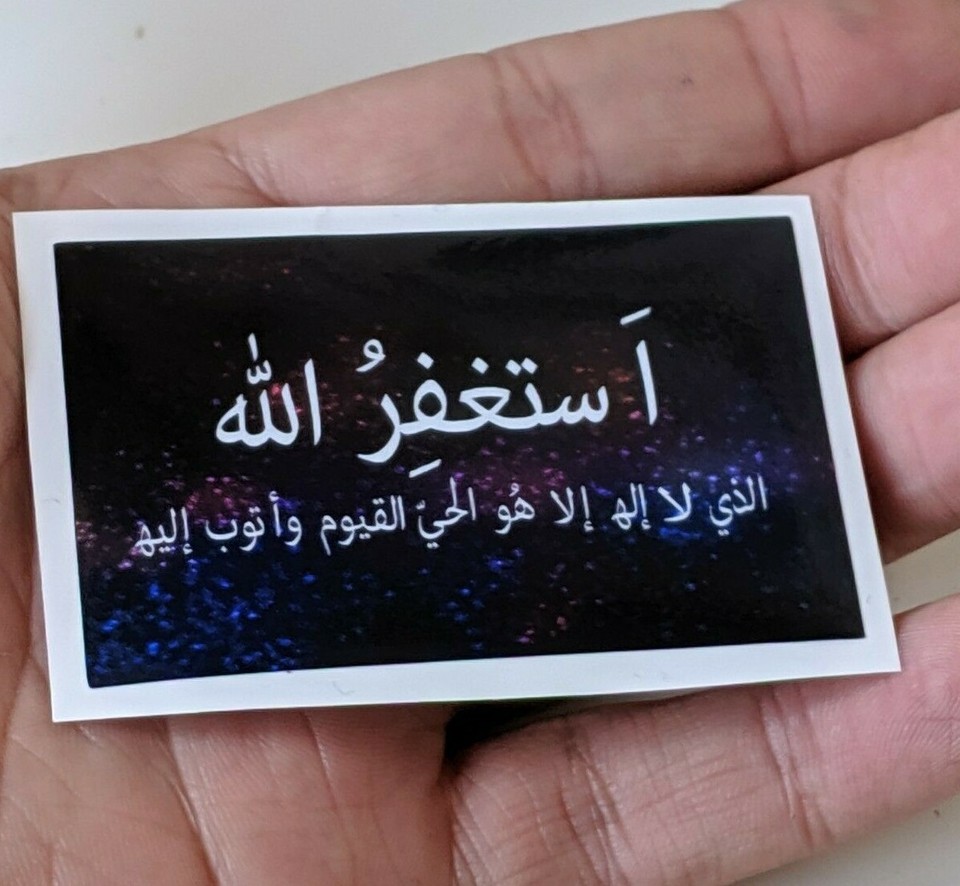 اَستغفِرُ الله
الذي لا إله إلا هُو الحيّ القيوم وأتوب إليه